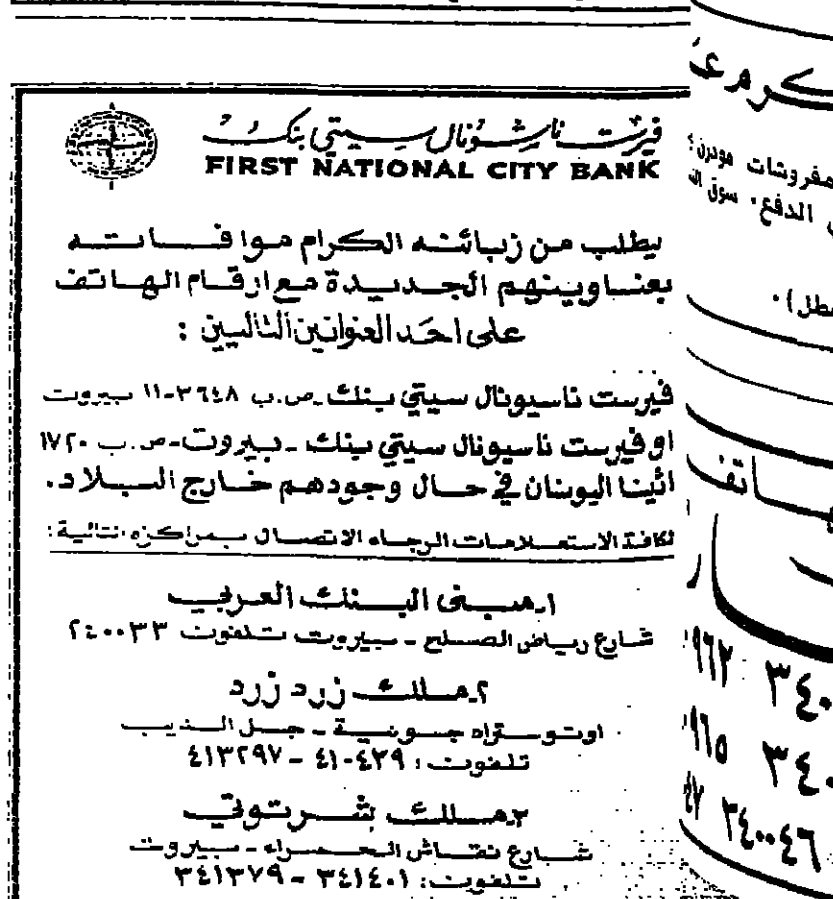 فيرست ناسيونال سيتي بنك
FIRST NATIONAL CITY BANK
يطلب من زبائنه الكرام موافاته
بعناوينهم الجديدة مع ارقام الهاتف
على احد العنوانين التاليين :
فيرست ناسيونال سيتي بنك ـ ص.ب ٣٦٤٨-١١ بيروت
او فيرست ناسيونال سيتي بنك ـ بيروت ـ ص.ب ١٧٢٠
اثينا اليونان في حال وجودهم خارج البلاد.
لكافة الاستعلامات الرجاء الاتصال بمراكزه التالية:
١ـ مبنى البنك العربي
شارع رياض الصلح ـ بيروت تلفون ٢٤٠٠٣٣
٢ـ ملك زرد زرد
اوتوستراد جونية ـ جل الديب
تلفون: ٤١٠٤٣٩ - ٤١٣٢٩٧
٣ـ ملك بشرتوتي
شارع نقاش الحمراء ـ بيروت
تلفون: ٣٤١٤٠١ - ٣٤١٣٧٩
مفروشات مودرن
الدفع . سوق
٣٤٠٠٤٦